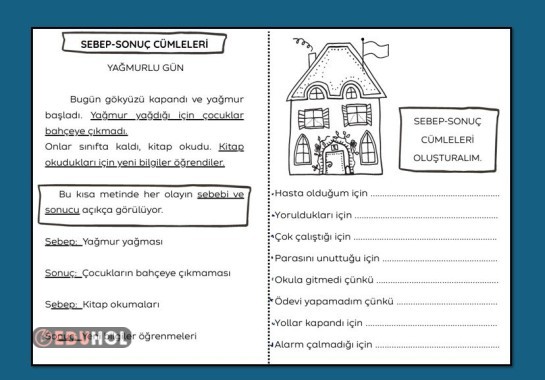 SEBEP-SONUÇ CÜMLELERİ
YAĞMURLU GÜN
Bugün gökyüzü kapandı ve yağmur
başladı. Yağmur yağdığı için çocuklar
bahçeye çıkmadı.
Onlar sınıfta kaldı, kitap okudu. Kitap
okudukları için yeni bilgiler öğrendiler.
Bu kısa metinde her olayın sebebi ve
sonucu açıkça görülüyor.
Sebep: Yağmur yağması
Sonuç: Çocukların bahçeye çıkmaması
Sebep: Kitap okumaları
öğrenmeleri
EDUHOL
SEBEP-SONUÇ
CÜMLELERİ
OLUŞTURALIM.
Hasta olduğum için ..........................................
Yoruldukları için ..........................................
Çok çalıştığı için ..........................................
Parasını unuttuğu için ..........................................
Okula gitmedi çünkü ..........................................
Ödevi yapamadım çünkü ..........................................
Yollar kapandı için ..........................................
Alarm çalmadığı için ..........................................